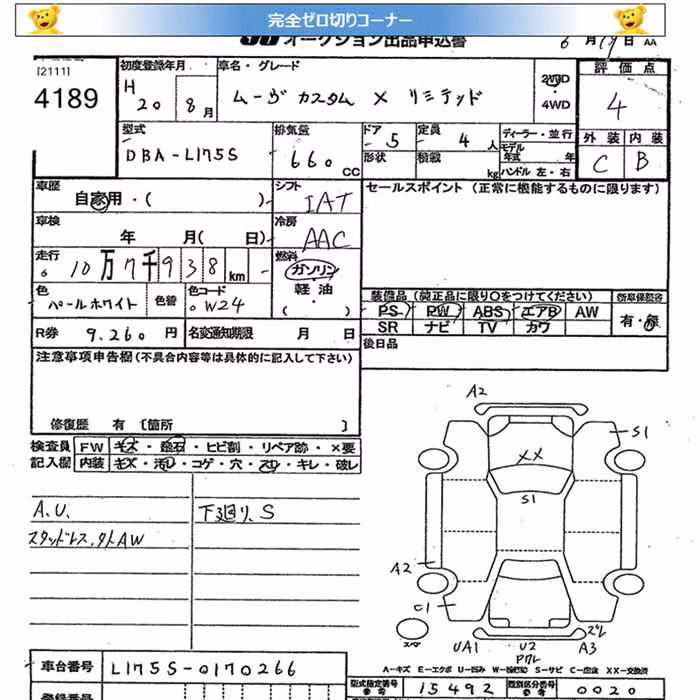 完全ゼロ切りコーナー
オークション出品申込書 6月19日 AA
[2111]
4189
初度登録年月 H 20 8月
車名・グレード ムーヴ カスタム X リミテッド
2WD
4WD
評価点
4
外装 内装
C B
型式 DBA-L175S
排気量 660 CC
ドア 5
形状
定員 4人
積載 kg
ディーラー・並行
モデル年式 年
ハンドル 左・右
車歴 自家用・( )
シフト IAT
セールスポイント (正常に機能するものに限ります)
車検 年 月( 日)
冷房 AAC
走行 10万7千938km
燃料 ガソリン・軽油・( )
色 パールホワイト 色替
色コード W24
装備品(純正品に限り○をつけてください)
PS PW ABS エアB AW
SR ナビ TV カワ
新車保証書
有・無
R券 9,260円
名変通知期限 月 日
後日品
注意事項申告欄(不具合内容等は具体的に記入して下さい)
修復歴 有 [箇所 ]
検査員記入欄
FW キズ・飛石・ヒビ割・リペア跡・×要
内装 キズ・汚レ・コゲ・穴・スリ・キレ・破レ
A.U.
スタッドレス,外AW
下廻り,S
A2
S1
XX
S1
A2
C1
スペア
UA1
U2
A3
ズレ
A-キズ E-エクボ U-凹ミ W-補修跡 S-サビ C-腐食 XX-交換済
車台番号 L175S-0170266
型式指定番号 15492
類別区分番号 0020
登録番号